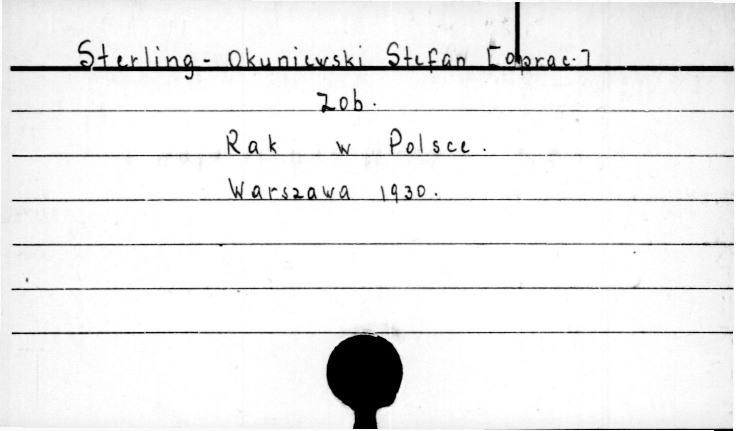 Sterling - Okuniewski Stefan [oprac.]
Zob.
Rak w Polsce.
Warszawa 1930.